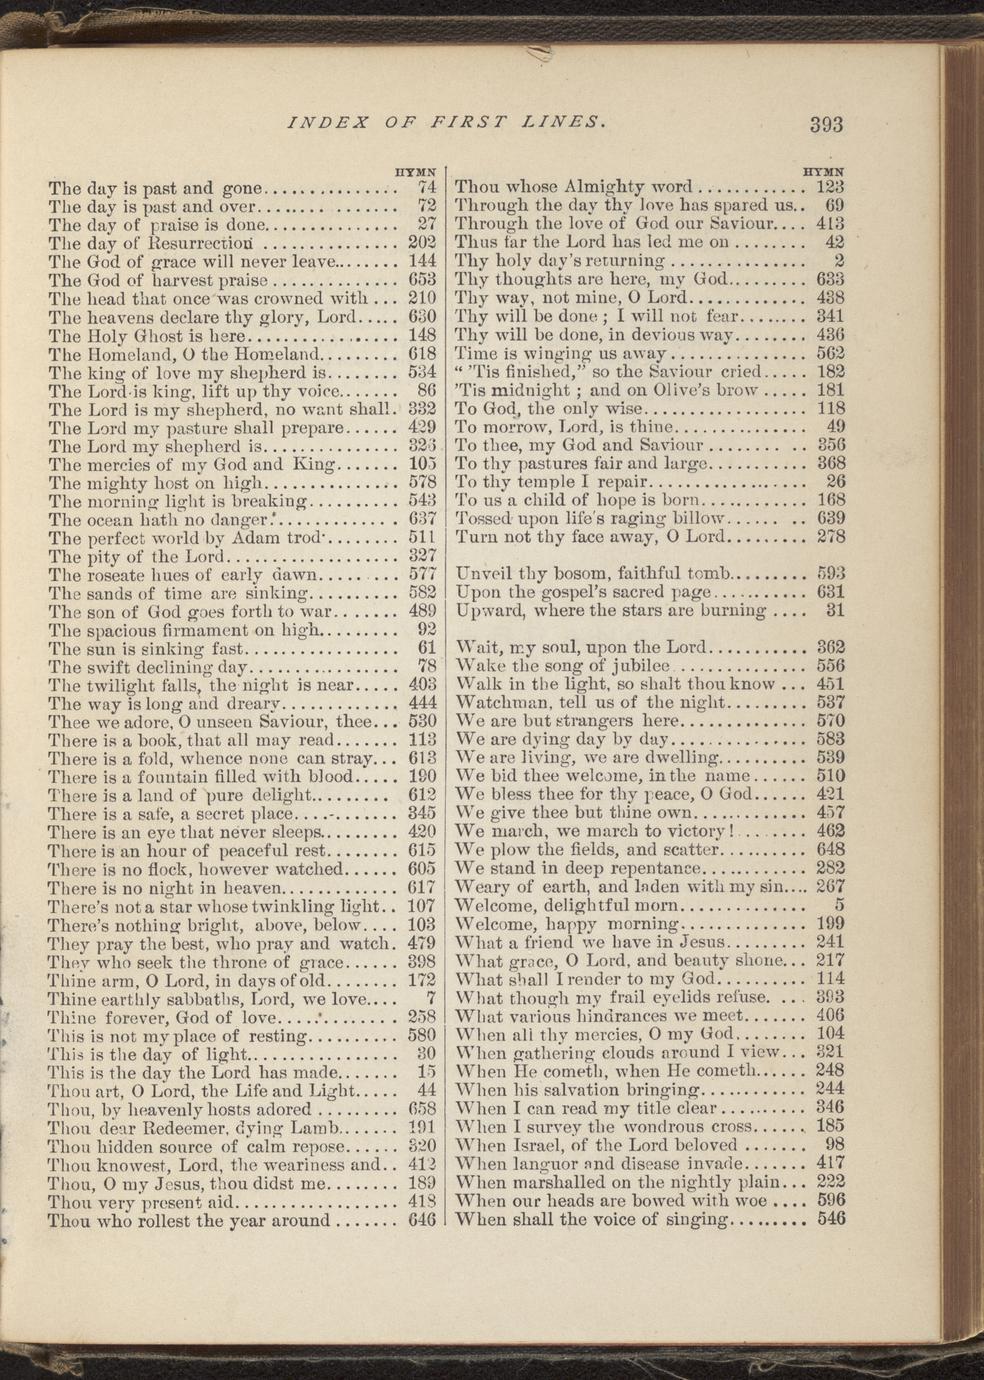 INDEX OF FIRST LINES.
393
HYMN
The day is past and gone............... 74
The day is past and over............... 72
The day of praise is done............... 27
The day of Resurrection ............... 202
The God of grace will never leave........ 144
The God of harvest praise .............. 653
The head that once was crowned with ... 210
The heavens declare thy glory, Lord..... 630
The Holy Ghost is here................. 148
The Homeland, O the Homeland......... 618
The king of love my shepherd is........ 534
The Lord is king, lift up thy voice....... 86
The Lord is my shepherd, no want shall. 332
The Lord my pasture shall prepare...... 429
The Lord my shepherd is............... 326
The mercies of my God and King....... 105
The mighty host on high............... 578
The morning light is breaking.......... 543
The ocean hath no danger.............. 637
The perfect world by Adam trod......... 511
The pity of the Lord................... 327
The roseate hues of early dawn......... 577
The sands of time are sinking.......... 582
The son of God goes forth to war....... 489
The spacious firmament on high......... 92
The sun is sinking fast................. 61
The swift declining day................. 78
The twilight falls, the night is near..... 403
The way is long and dreary............. 444
Thee we adore, O unseen Saviour, thee... 530
There is a book, that all may read....... 113
There is a fold, whence none can stray... 613
There is a fountain filled with blood..... 190
There is a land of pure delight......... 612
There is a safe, a secret place.......... 345
There is an eye that never sleeps......... 420
There is an hour of peaceful rest........ 615
There is no flock, however watched...... 605
There is no night in heaven............. 617
There's not a star whose twinkling light.. 107
There's nothing bright, above, below.... 103
They pray the best, who pray and watch. 479
They who seek the throne of grace...... 398
Thine arm, O Lord, in days of old....... 172
Thine earthly sabbaths, Lord, we love.... 7
Thine forever, God of love.............. 258
This is not my place of resting.......... 580
This is the day of light................. 30
This is the day the Lord has made....... 15
Thou art, O Lord, the Life and Light..... 44
Thou, by heavenly hosts adored ......... 658
Thou dear Redeemer, dying Lamb....... 191
Thou hidden source of calm repose...... 320
Thou knowest, Lord, the weariness and.. 412
Thou, O my Jesus, thou didst me........ 189
Thou very present aid.................. 418
Thou who rollest the year around ....... 646
HYMN
Thou whose Almighty word ............ 123
Through the day thy love has spared us.. 69
Through the love of God our Saviour.... 413
Thus far the Lord has led me on ........ 42
Thy holy day's returning ............... 2
Thy thoughts are here, my God......... 633
Thy way, not mine, O Lord............. 438
Thy will be done ; I will not fear........ 341
Thy will be done, in devious way........ 436
Time is winging us away............... 562
“ 'Tis finished,” so the Saviour cried..... 182
'Tis midnight ; and on Olive's brow ..... 181
To God, the only wise.................. 118
To morrow, Lord, is thine............... 49
To thee, my God and Saviour .......... 356
To thy pastures fair and large........... 368
To thy temple I repair.................. 26
To us a child of hope is born............ 168
Tossed upon life's raging billow........ 639
Turn not thy face away, O Lord......... 278
Unveil thy bosom, faithful tomb......... 593
Upon the gospel's sacred page........... 631
Upward, where the stars are burning .... 31
Wait, my soul, upon the Lord........... 362
Wake the song of jubilee .............. 556
Walk in the light, so shalt thou know ... 451
Watchman, tell us of the night......... 537
We are but strangers here.............. 570
We are dying day by day............... 583
We are living, we are dwelling.......... 539
We bid thee welcome, in the name...... 510
We bless thee for thy peace, O God...... 421
We give thee but thine own............. 457
We march, we march to victory! ........ 462
We plow the fields, and scatter.......... 648
We stand in deep repentance............ 282
Weary of earth, and laden with my sin.... 267
Welcome, delightful morn.............. 5
Welcome, happy morning.............. 199
What a friend we have in Jesus......... 241
What grace, O Lord, and beauty shone... 217
What shall I render to my God.......... 114
What though my frail eyelids refuse. ... 393
What various hindrances we meet....... 406
When all thy mercies, O my God........ 104
When gathering clouds around I view... 321
When He cometh, when He cometh...... 248
When his salvation bringing............ 244
When I can read my title clear .......... 346
When I survey the wondrous cross...... 185
When Israel, of the Lord beloved ....... 98
When languor and disease invade....... 417
When marshalled on the nightly plain... 222
When our heads are bowed with woe .... 596
When shall the voice of singing......... 546